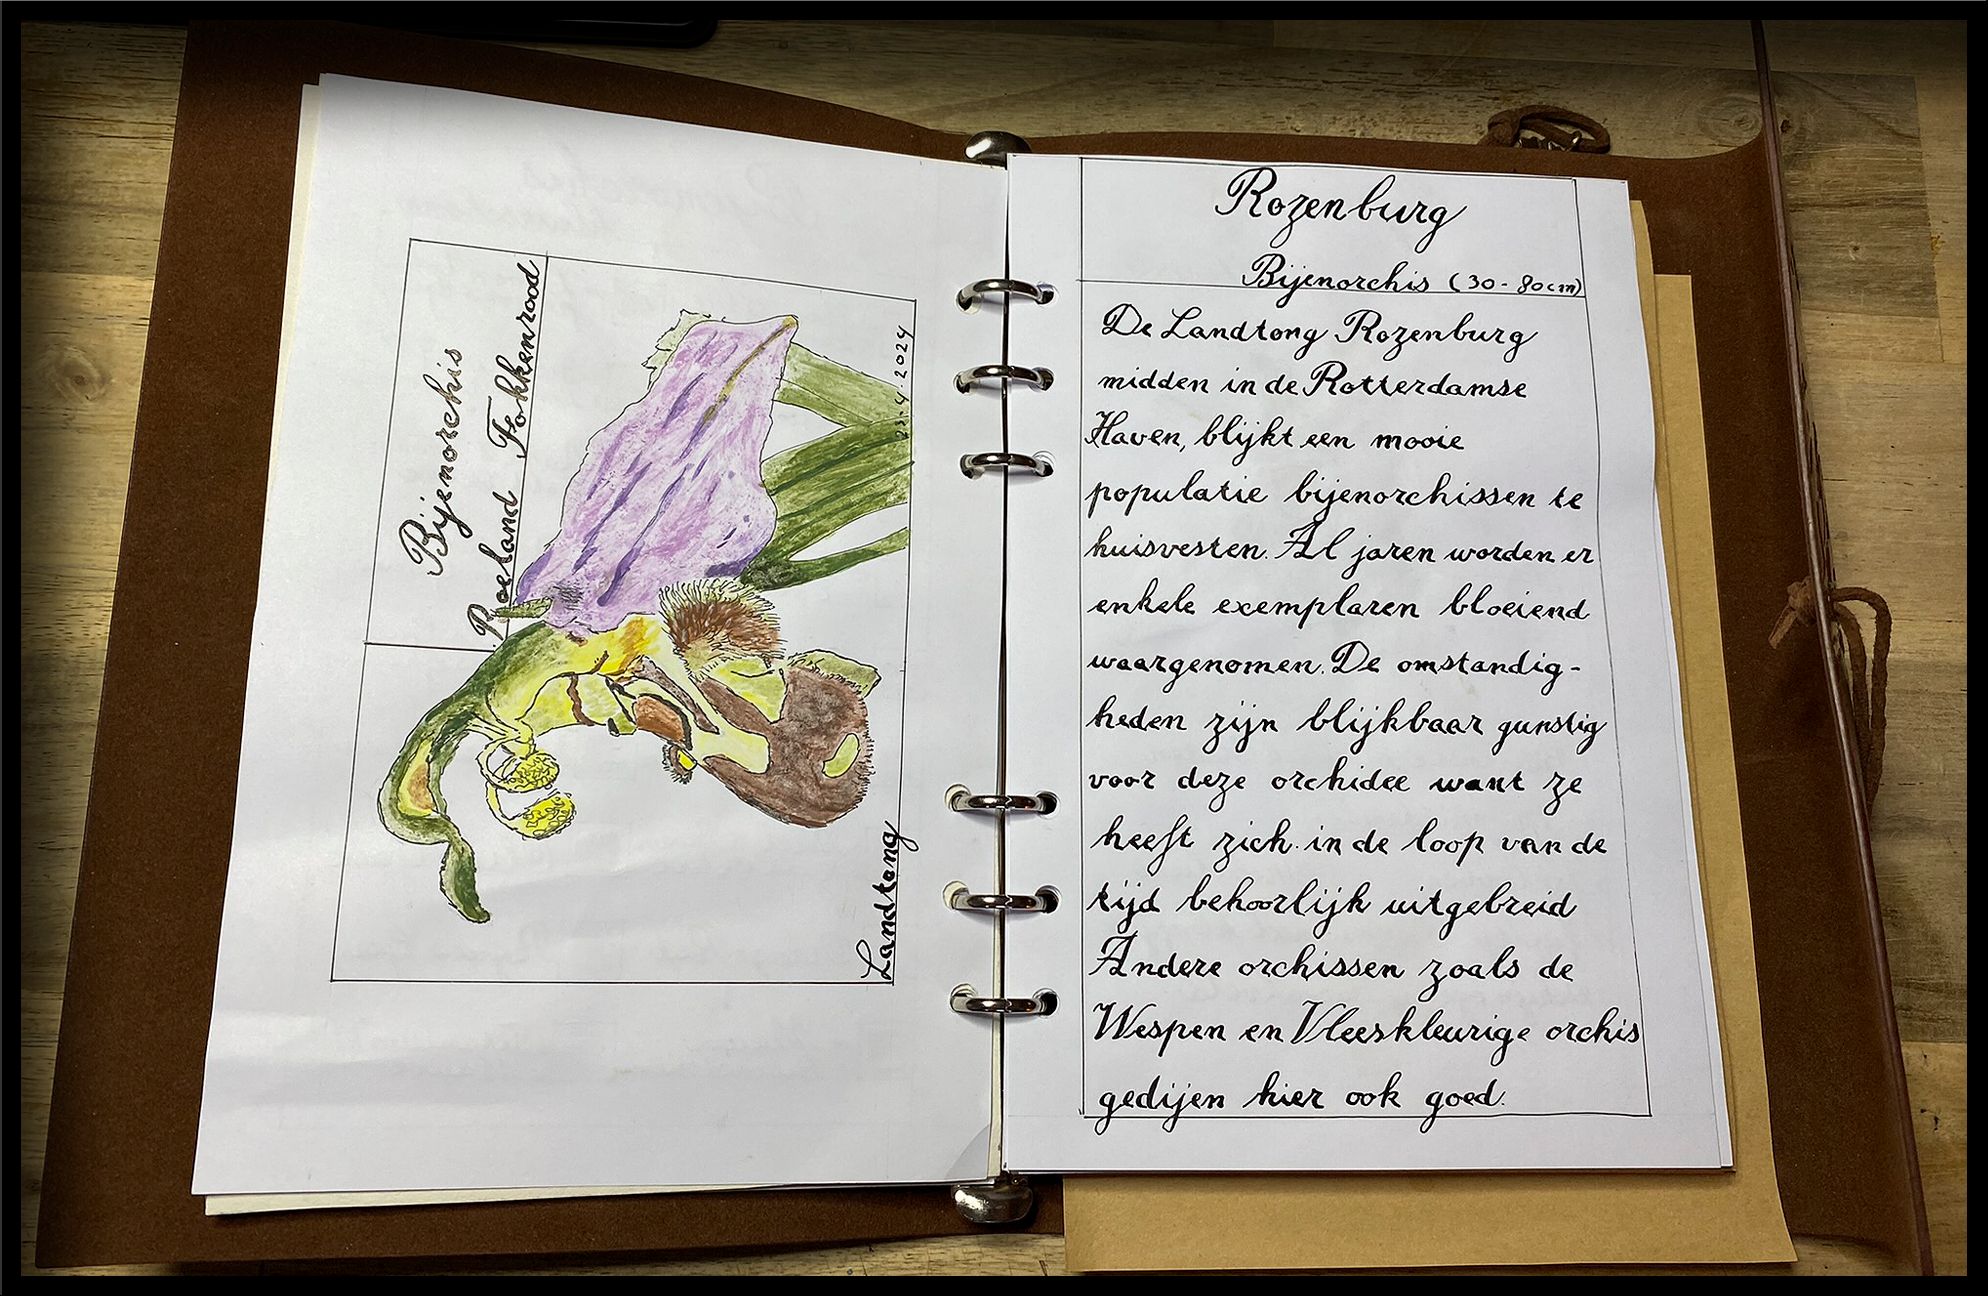 Bijenorchis
Roeland Fokkenrood
23-4-2024
Landtong
Rozenburg
Bijenorchis (30-80cm)
De Landtong Rozenburg
midden in de Rotterdamse
Haven, blijkt een mooie
populatie bijenorchissen te
huisvesten. Al jaren worden er
enkele exemplaren bloeiend
waargenomen. De omstandig-
heden zijn blijkbaar gunstig
voor deze orchidee want ze
heeft zich in de loop van de
tijd behoorlijk uitgebreid
Andere orchissen zoals de
Wespen en Vleeskleurige orchis
gedijen hier ook goed.